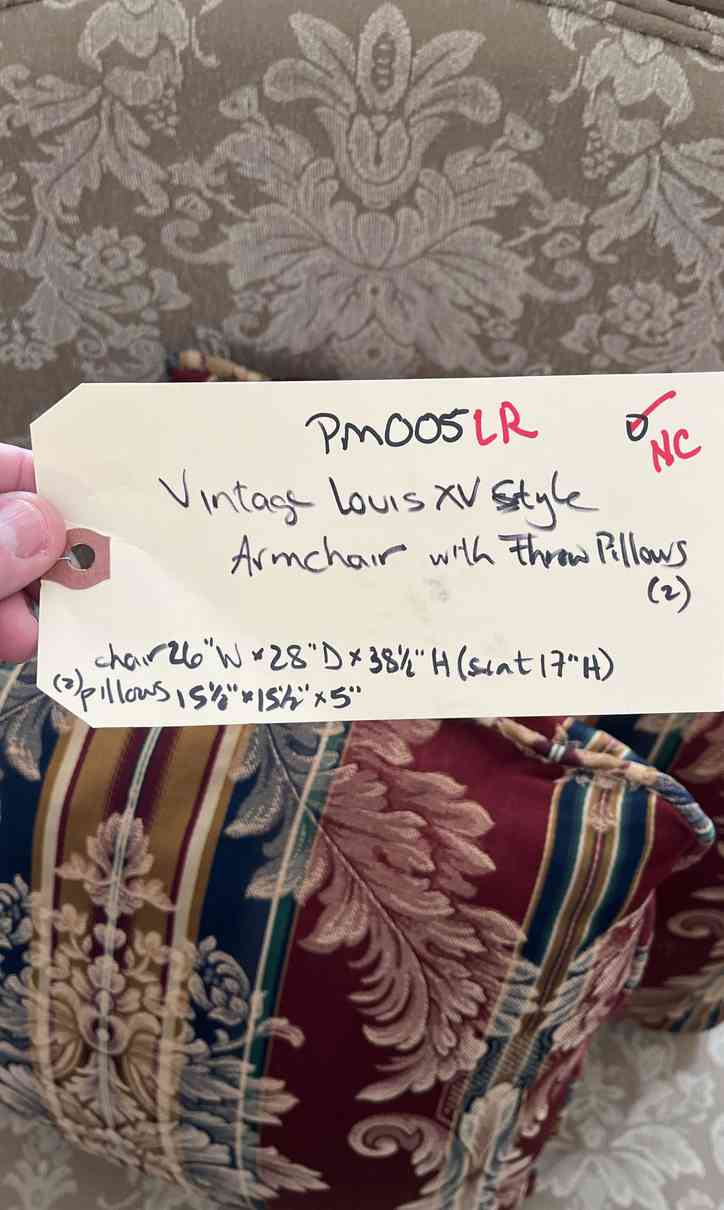 PM005LR
NC
Vintage Louis XV Style
Armchair with Throw Pillows
(2)
chair 26"W x 28"D x 38½"H (seat 17"H)
(2) pillows 15½" x 15½" x 5"